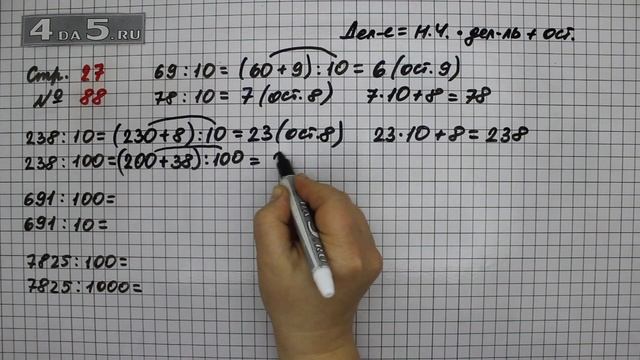 4DA5.RU
Дел-е = Н.Ч. · дел-ль + ост.
Стр. 27
№ 88
69 : 10 = (60 + 9) : 10 = 6 (ост. 9)
78 : 10 = 7 (ост. 8) 7 · 10 + 8 = 78
238 : 10 = (230 + 8) : 10 = 23 (ост. 8) 23 · 10 + 8 = 238
238 : 100 = (200 + 38) : 100 =
691 : 100 =
691 : 10 =
7825 : 100 =
7825 : 1000 =